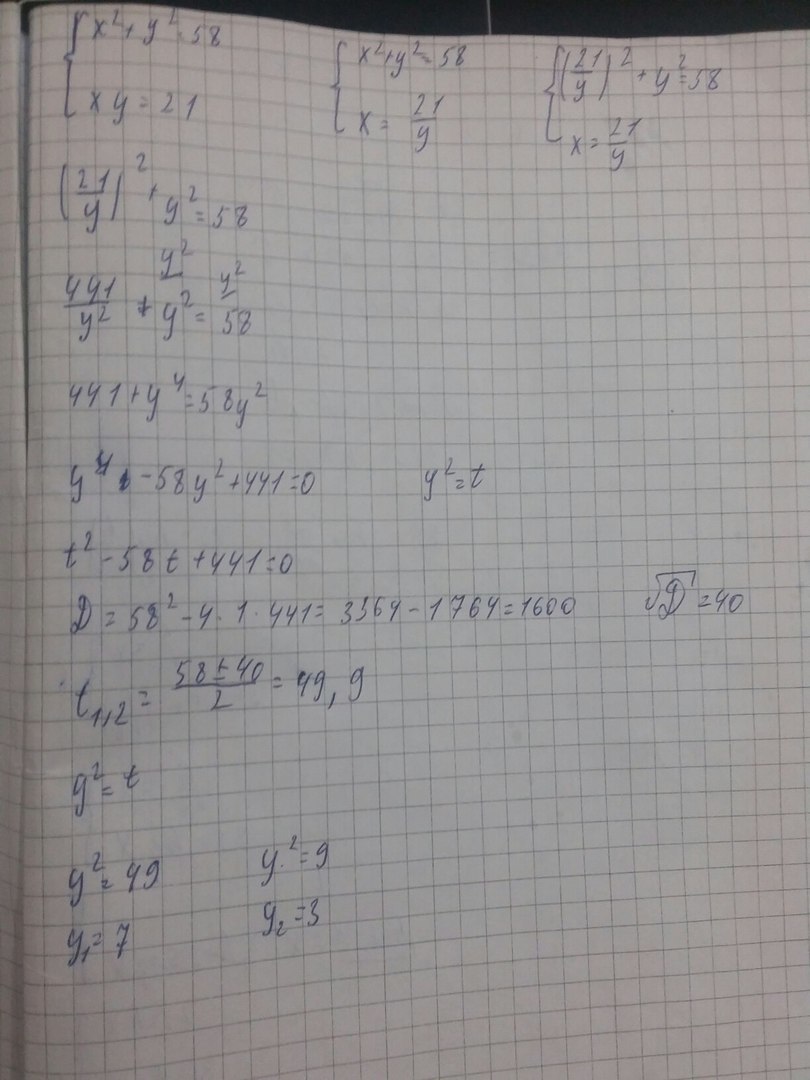 { x² + y² = 58
xy = 21
{ x² + y² = 58
x = 21/y
{ (21/y)² + y² = 58
x = 21/y
(21/y)² + y² = 58
y² y²
441/y² + y² = 58
441 + y⁴ = 58y²
y⁴ - 58y² + 441 = 0 y² = t
t² - 58t + 441 = 0
D = 58² - 4 · 1 · 441 = 3364 - 1764 = 1600 √D = 40
t₁,₂ = (58 ± 40)/2 = 49, 9
y² = t
y² = 49 y² = 9
y₁ = 7 y₂ = 3